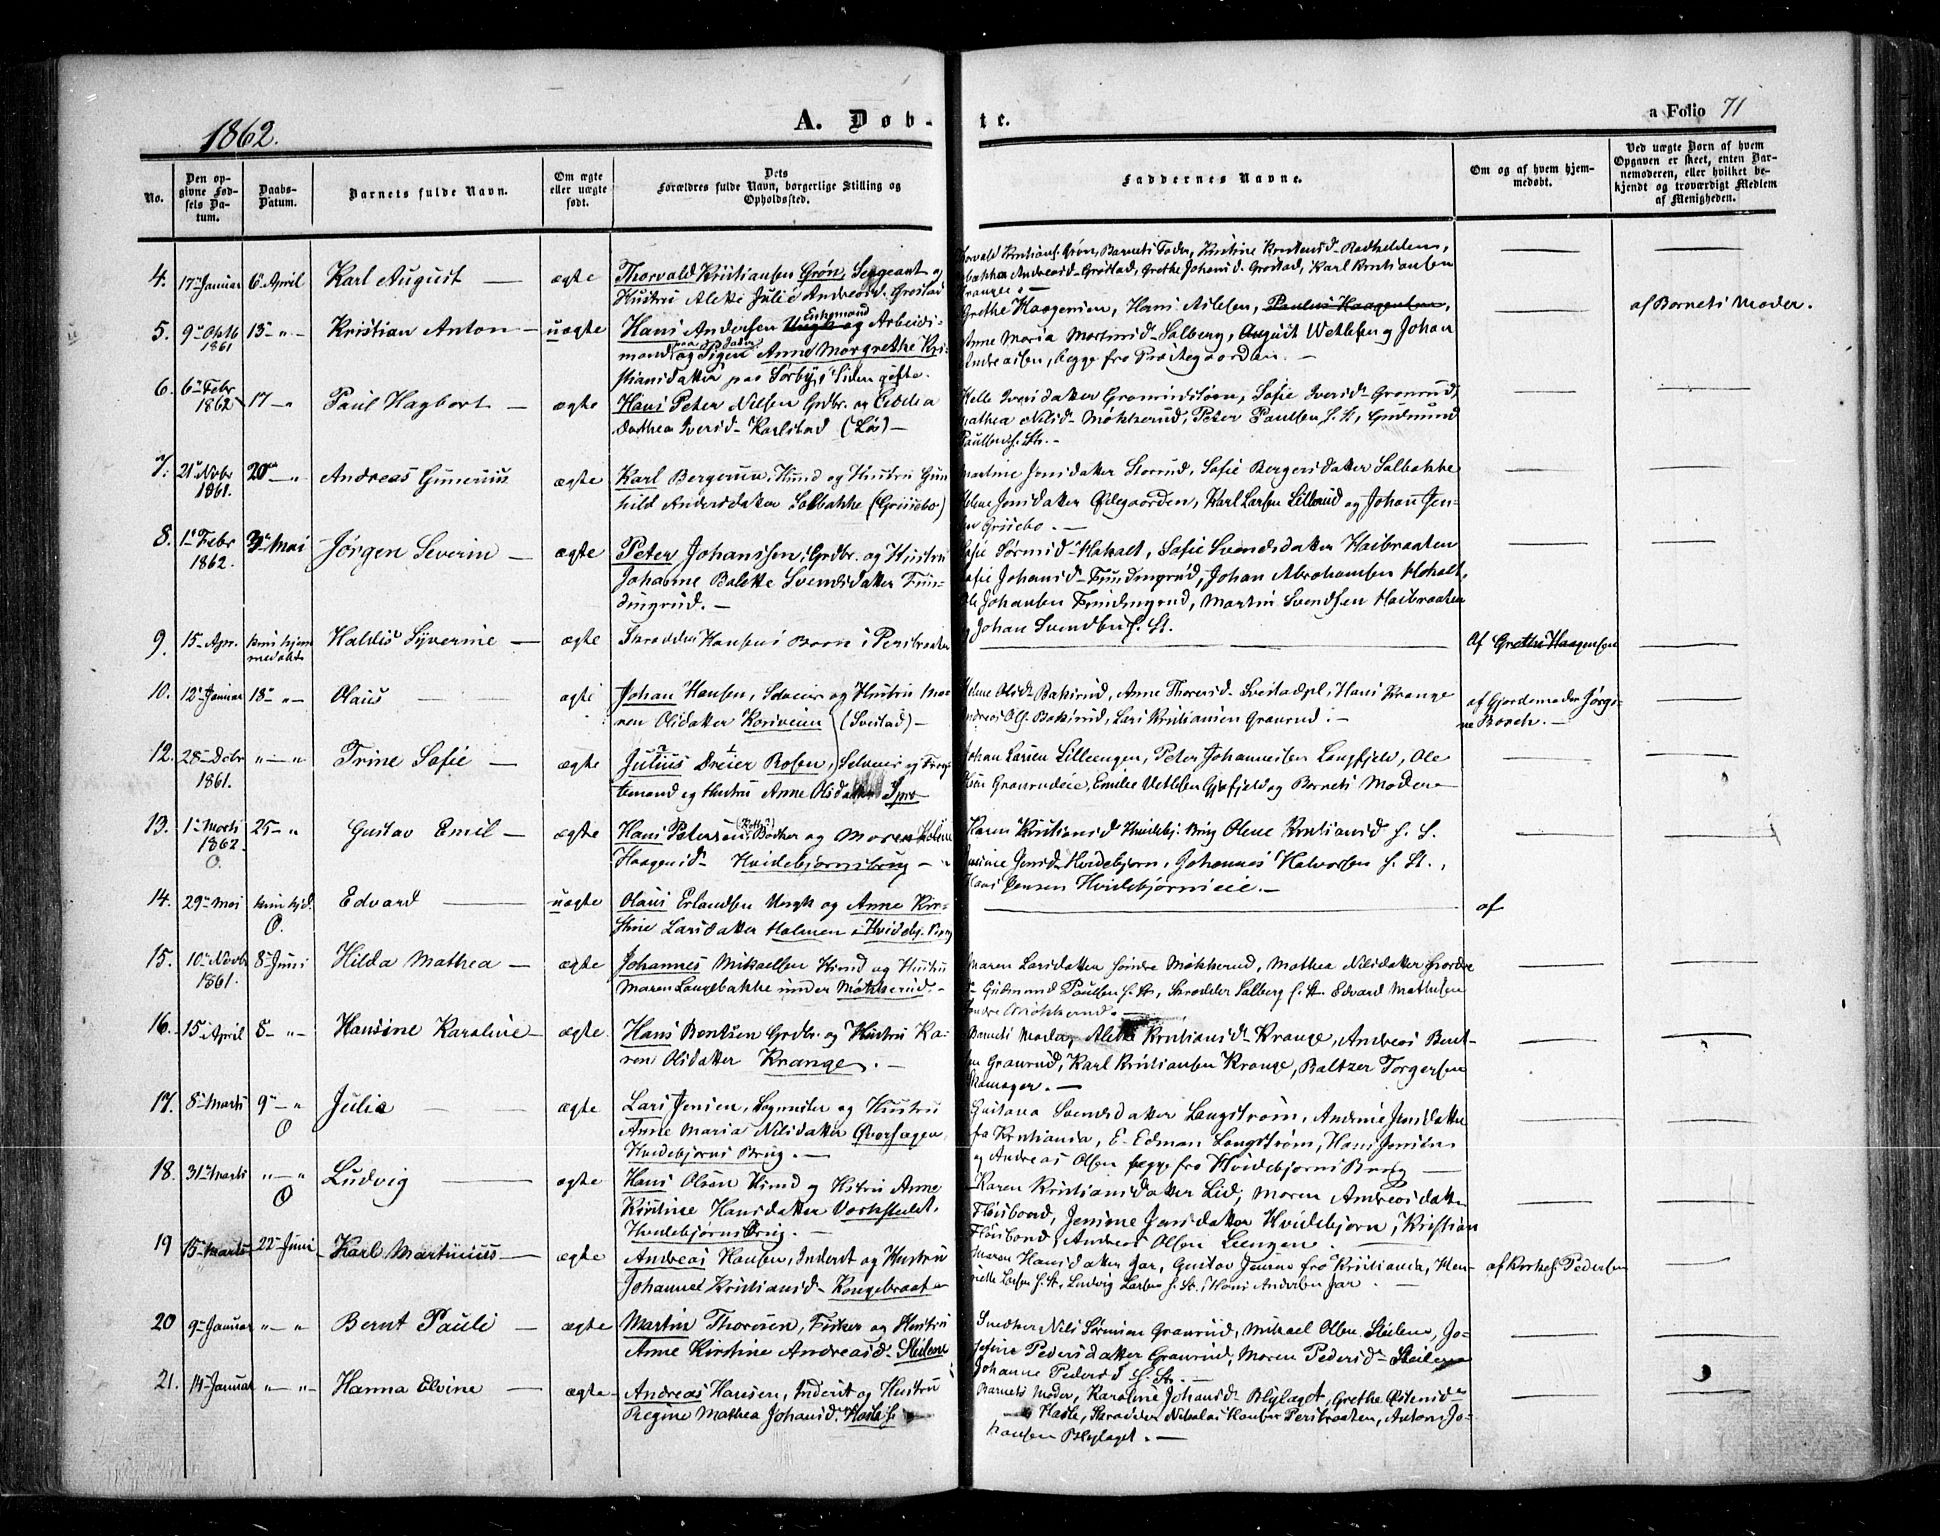 1862.
A. Døb-
te.
a Folio 71
No.
Den op-
givne Fød-
sels Da-
tum.
Daabs-
Datum.
Barnets fulde Navn.
Om ægte
eller uægte
født.
Dets
Forældres fulde Navn, borgerlige Stilling og
Opholdssted.
Faddernes Navne.
Om og af hvem hjem-
medøbt.
Ved uægte Børn af hvem
Opgaven er skeet, enten Bar-
nemoderen, eller hvilket be-
kjendt og troværdigt Medlem
af Menigheden.
4. 17de Januar 6te April Karl August — ægte Thorvald Kristiansen Grøn, Sergeant og
Hustru Alette Julie Andreasd. Grøstad
Kristians. Grøn, Barnets Fader, Kristine
Andreasd- Grøstad, Grethe Johansd. Grøstad, Karl Kristiansen
Krange. —
5. 9de Oktb 1861 13- „ - Kristian Anton — uægte Hans Andersen Ungk og Enkemand Arbeids-
mand og Pigen Anne Margrethe Kri-
stiansdatter paa Sørby, siden gifte.
Grethe Haagensen, Hans Aslesen, Paulus Haagensen,
Anne Maria Martinsd- Salberg, August Wetlesen og Johan
Andreasen, begge fra Præstegaarden. —
af Barnets Moder.
6. 6te Febr 1862 17 - „ Paul Hagbart — ægte Hans Peter Nilsen Grdbr. og Edle
Dorthea Iversd- Karlstad (Løs) —
Helle Iversdatter Granrudsløen, Sofie Iversd- Granrud,
Mathea Nilsd- Møkkerud, Peter Paulsen f. St., Gudmund
Paulsen f. St. -
7. 21de Novbr 1861. 20- „ Andreas Gunerius ægte Karl Bergersen, Husmd og Hustru Gun
hild Andersdatter Solbakke (Grisebo)
Martine Jensdatter Storrud, Sofie Bergersdatter Solbakke
Helene Jensdatter Østegaarden, Karl Larsen Lillerud og Johan Jen-
sen Grisebo. —
8. 1ste Febr 1862. 3die Mai Jørgen Severin — ægte Peter Johanssen, Grdbr. og Hustru
Johanne Balette Svendsdatter Fun-
dingrud. —
Sofie Svendsdatter Haibraaten
Sofie Johansd- Fundingrud, Johan Abrahamsen Hokalt,
Ole Johansen Fundingrud, Martin Svendsen Haibraaten
og Johan Svendsen f. St.
9. 15- Apr. kuns hjem
medøbt Haldis Syverine — ægte Skrædder Hansens Barn i Persbraaten
Af Grethe Haagensen
10. 12te Januar 18- „ - Olaus — ægte Johan Hansen, Selveier og Hustru Ma-
ren Olsdatter Korsveien (Svestad) —
Helene Olsd- Bakerud, Anne Thoresd- Svestadpl., Hans Krange
Andreas Ols. Bakerud, Lars Kristiansen Granrud. —
af Gjordemoder Jørgi-
ne Bosch. —
12. 28- Debr 1861. „ — „ Trine Sofie — ægte Julius Dreier Rosen, Selveier og
temand og Hustru Anne Olsdatter Spro
Johan Larsen Lillengen, Peter Johannessen Langfjeld, Ole
Granrudeie, Emilie Vetlesen Gjøfjeld og Barnets Moder
13. 1ste Marts 1862. O. 25- „ Gustav Emil — ægte Hans Petersen Bødker og Maren Helene
Haagensd- Hvidebjørnsbrug —
Karen Kristiansd Hvidebj. Brug Olene Kristiansd f. S.
Jensine Jensd- Hvidebjørn, Johannes Halvorsen f. St.,
Hans Jensen Hvidebjørnseie. —
14. 29de Mai kun hjd. O. Edvard — uægte Olaus Erlandsen Ungk og Anne Kir-
stine Larsdatter Holmen i Hvidebj. Brug
af
15. 10de Novbr 1861. 8de Juni Hilda Mathea — ægte Johannes Mikaelsen Husmd og Hustru
Maren Langebakke under Møkkerud. —
Maren Larsdatter søndre Møkkerud, Mathea Nilsdatter nordre
Gudmund Paulsen f. St., Skrædder Salberg f. St. Edvard Mathisen
søndre Møkkerud. —
16. 15 April 8- „ - Hansine Karoline — ægte. Hans Bentsen Grdbr. og Hustru Ka-
ren Olsdatter Krange. —
Barnets Moder, Alette Kristiansd- Krange, Andreas Bent-
sen Granrud, Karl Kristiansen Krange, Baltzer Torgersen
17. 8de Marts 9- „ O Julie — ægte Lars Jensen, Sagmester og Hustru
Anne Maria Nilsdatter Qværsagen,
Hvidebjørns Brug. —
Gustava Svendsdatter Langstrøm, Andrine Jensdatter
fra Kristiania, E. Edman Langstrøm, Hans Jensen
og Andreas Olsen begge fra Hvidebjørns Brug —
18. 31te Marts „ — „ O Ludvig — ægte Hans Olsen Husmd og Hstru Anne
Kirstine Hansdatter Værkstedet,
Hvidebjørns Brug. —
Karen Kristiansdatter Lid, Maren Andreasdatter
Flaisbond, Jensine Jensdatter Hvidebjørn, Kristian
Flaisbond, Andreas Olsen Leengen. —
19 15- Marts 22- Juni Karl Martinius — ægte Andreas Hansen, Inderst og Hustru
Johanne Kristiansd- Kongebraaten
Maren Hansdatter Jar, Gustav fra Kristiania, Hen-
riette Larsen f. St., Ludvig Larsen f. St., Hans Andersen Jar. —
af Kirkes. Pedersen
20 9- Januar „ — „ Bernt Pauli — ægte Martin Thoresen, Fisker og Hustru
Anne Kirstine Andreasd- Steilene
Snedker Nils Sørensen Granrud, Mikael Olsen Steilene, Jo-
sefine Pedersdatter Granrud, Maren Pedersd- Steilene
Johanne Pedersd f. St. —
21. 14- Januar „ — „ Hanna Elvine — ægte- Andreas Hansen, Inderst og Hustru
Regine Mathea Johansd. Hasle
Barnets Moder, Karoline Johansd- Blylaget, Grethe
Hasle, Skrædder Nikolai Hansen Persbraaten, Anton Jo-
hansen Blylaget. —